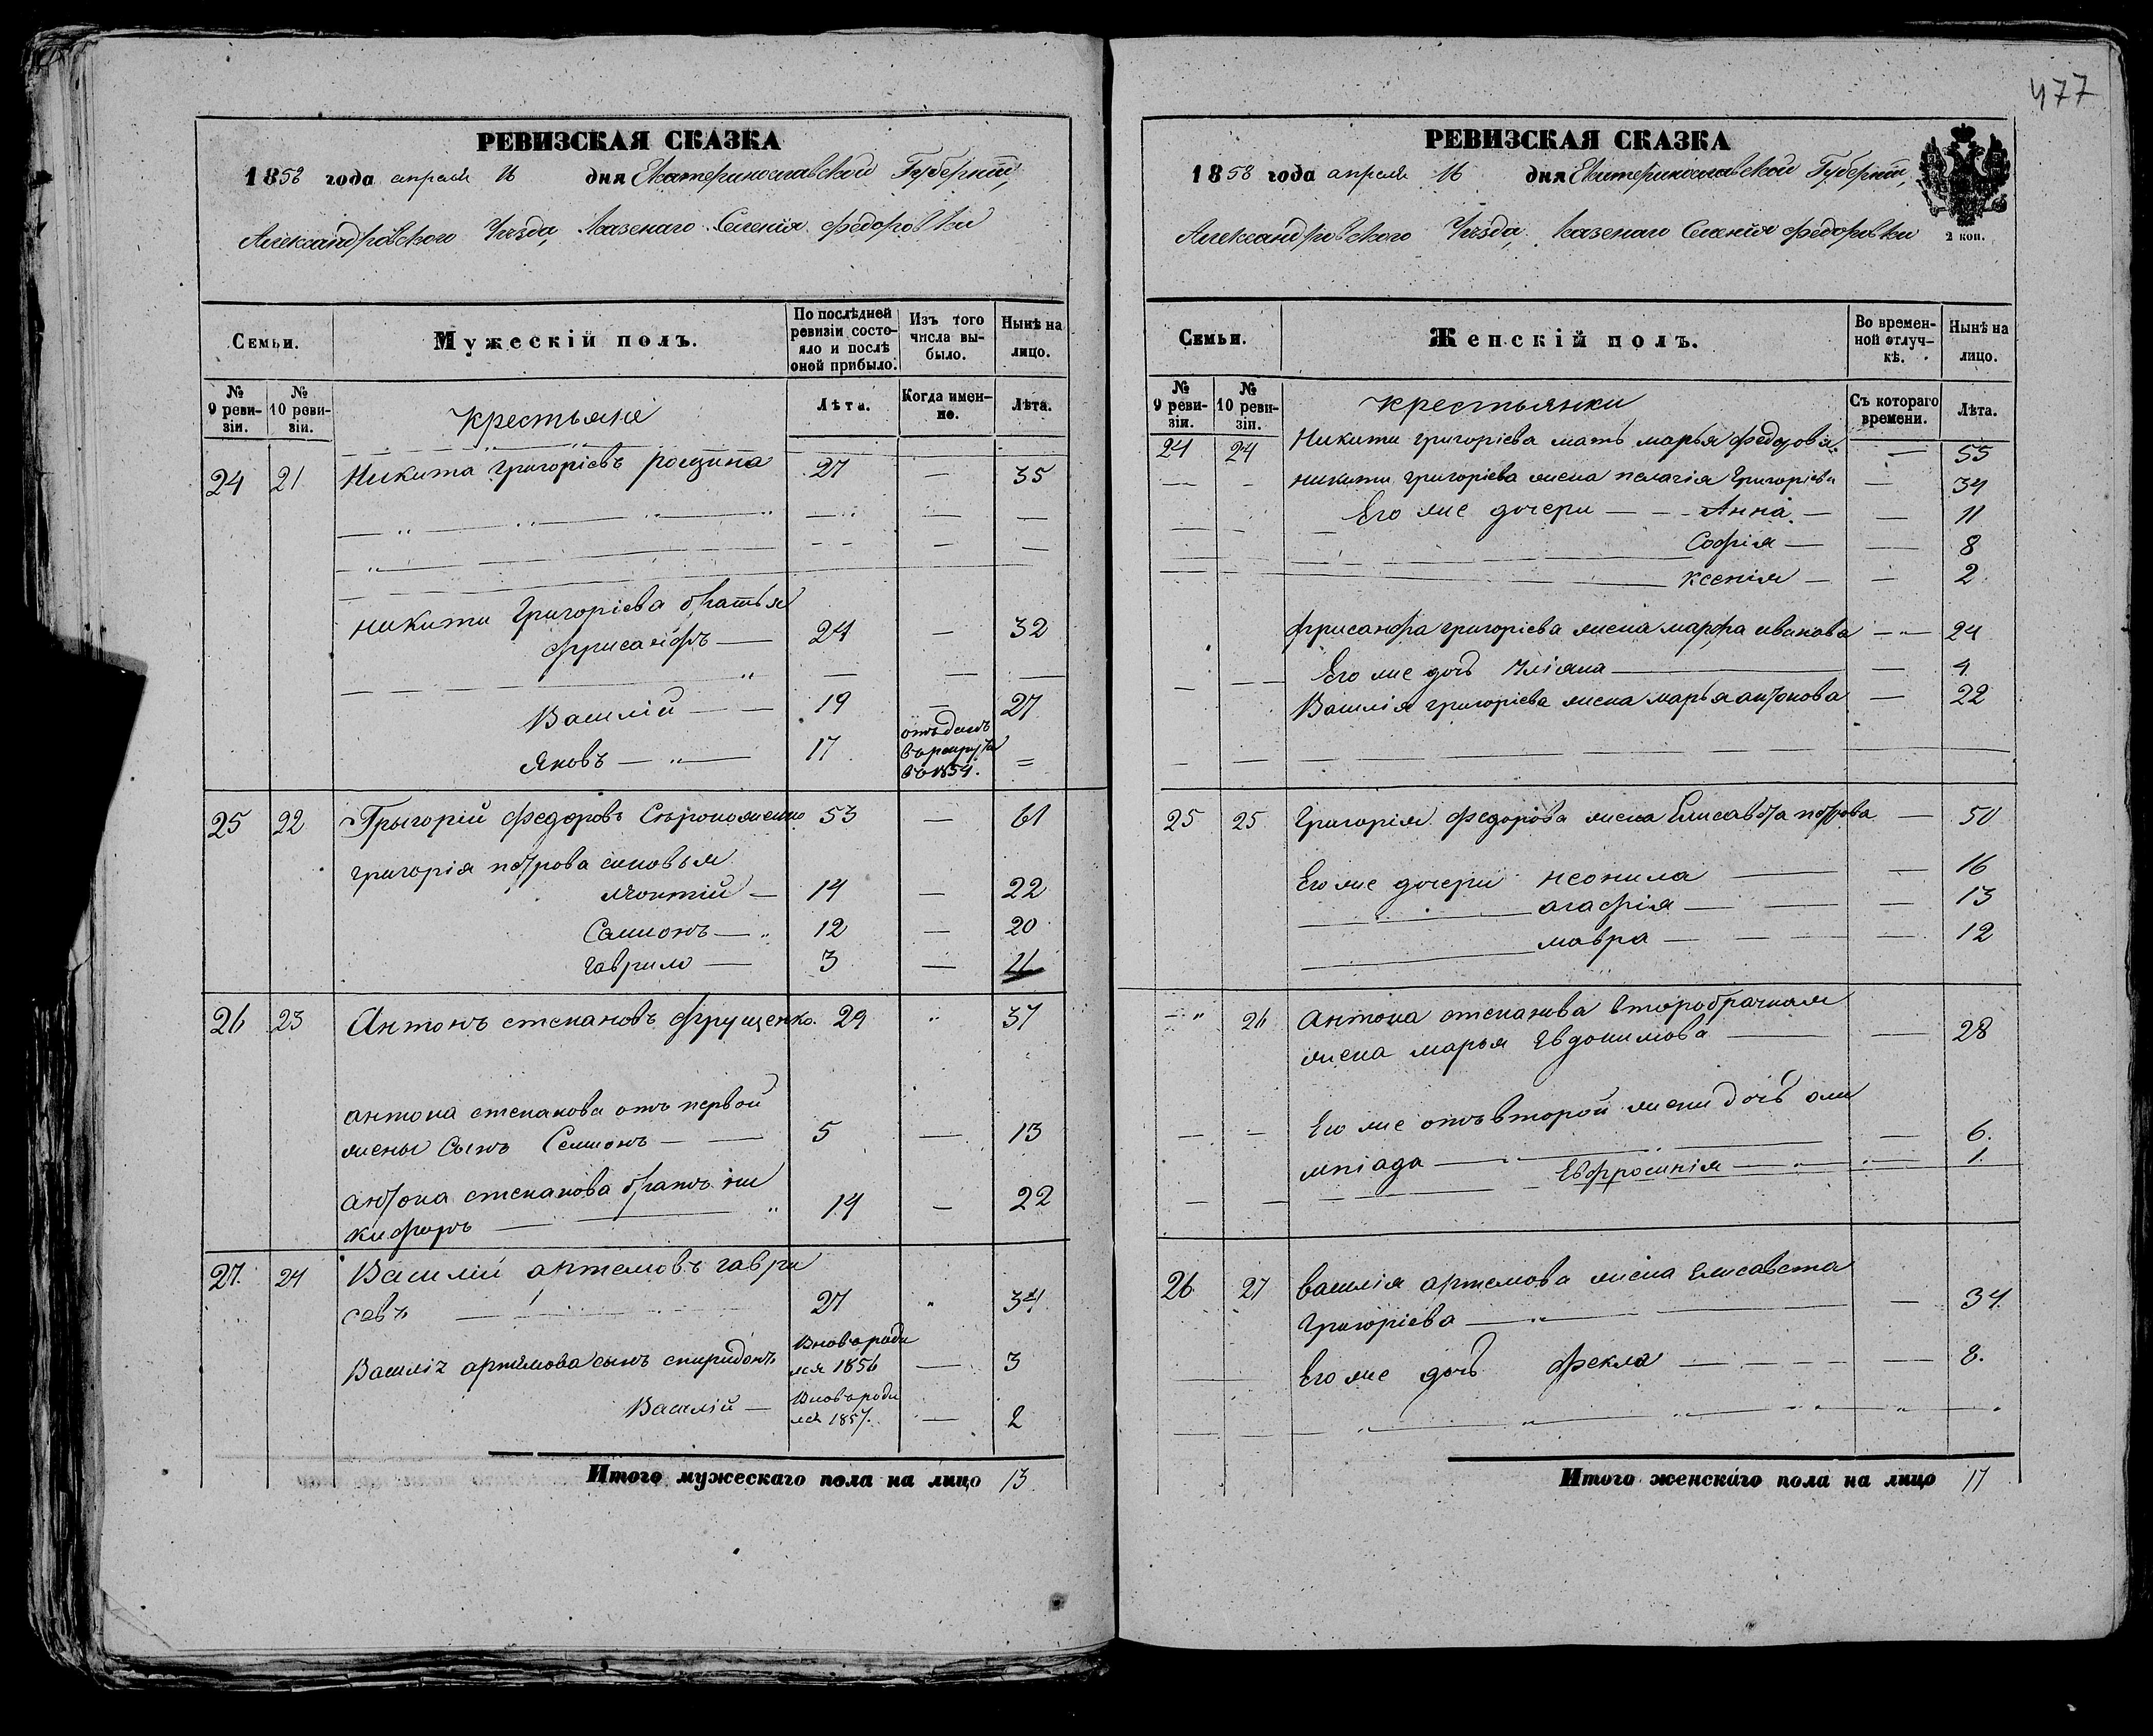 477
РЕВИЗСКАЯ СКАЗКА
1858 года апреля 16 дня Екатеринославской Губерніи,
Александровского Уѣзда, Казенаго Селенія Федоровки
Семьи.
Мужескій полъ.
По послѣдней ревизіи состояло и послѣ оной прибыло.
Изъ того числа выбыло.
Нынѣ на лицо.
№ 9 ревизіи.
№ 10 ревизіи.
Крестьяне
Лѣта.
Когда именно.
Лѣта.
24 21 Никита Григоріевъ 27 — 35
Никиты Григоріева братья
24 — 32
Василій — 19 — 27
Яковъ — 17 отъданъ въ рекруты въ 1854.
25 22 Грыгорій Федоровъ 53 — 61
Григорія петрова сыновья
14 — 22
Самионъ — 12 — 20
Гаврило — 3 — 11
26 23 Антонъ степановъ Фрущенко. 29 " 37
антона степанова отъ первой
жены сынъ Семионъ — 5 — 13
антона степанова братъ ни
кифоръ — 14 — 22
27. 24 Василій артемовъ гаври
совъ — 27 " 34
Василія артемова сынъ спиридонъ вновь роди лся 1856 — 3
Василій — Вновь роди лся 1857. — 2
Итого мужескаго пола на лицо 13
РЕВИЗСКАЯ СКАЗКА
1858 года апреля 16 дня Екатеринославской Губерніи,
Александровского Уѣзда, Казенаго Селенія Федоровки
2 коп.
Семьи.
Женскій полъ.
Во временной отлучкѣ.
Нынѣ на лицо.
№ 9 ревизіи.
№ 10 ревизіи.
крестьянки
Съ котораго времени.
Лѣта.
24 24 Никиты григоріева мать марья федорова — 55
никиты григоріева жена пелагія Григоріева — 34
Его же дочери — Анна — 11
Софія — 8
ксенія — 2
фрисанфа григоріева жена марфа иванова — 24
Его же дочь Уліяна — 4
Василія григоріева жена марья антонова — 22
25 25 Григорія федорова жена Елисавета петрова — 50
Его же дочери неонила — 16
агафія — 13
мавра — 12
— " 26 Антона степанова второбрачная
жена марья Евдокимова — 28
Его же отъ второй жены дочь оли
мпіада — 6.
Евфросинія — 1.
26 27 василія артемова жена Елисавета
Григоріева — 34
Его же дочь фекла — 8.
Итого женскаго пола на лицо 17